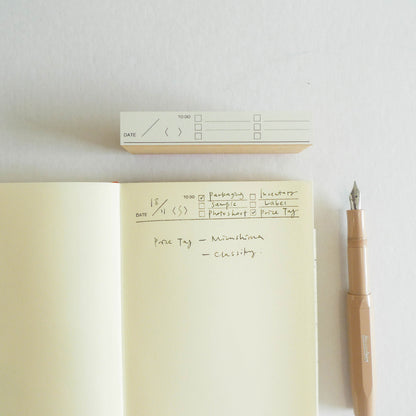 TO DO
DATE / ( )
TO DO ☑ Packaging ☐ Inventory
☐ Sample ☐ Label
DATE 15/11 (S) ☐ Photosheet ☑ Price Tag
Price Tag – Mizushima
– Classiky.